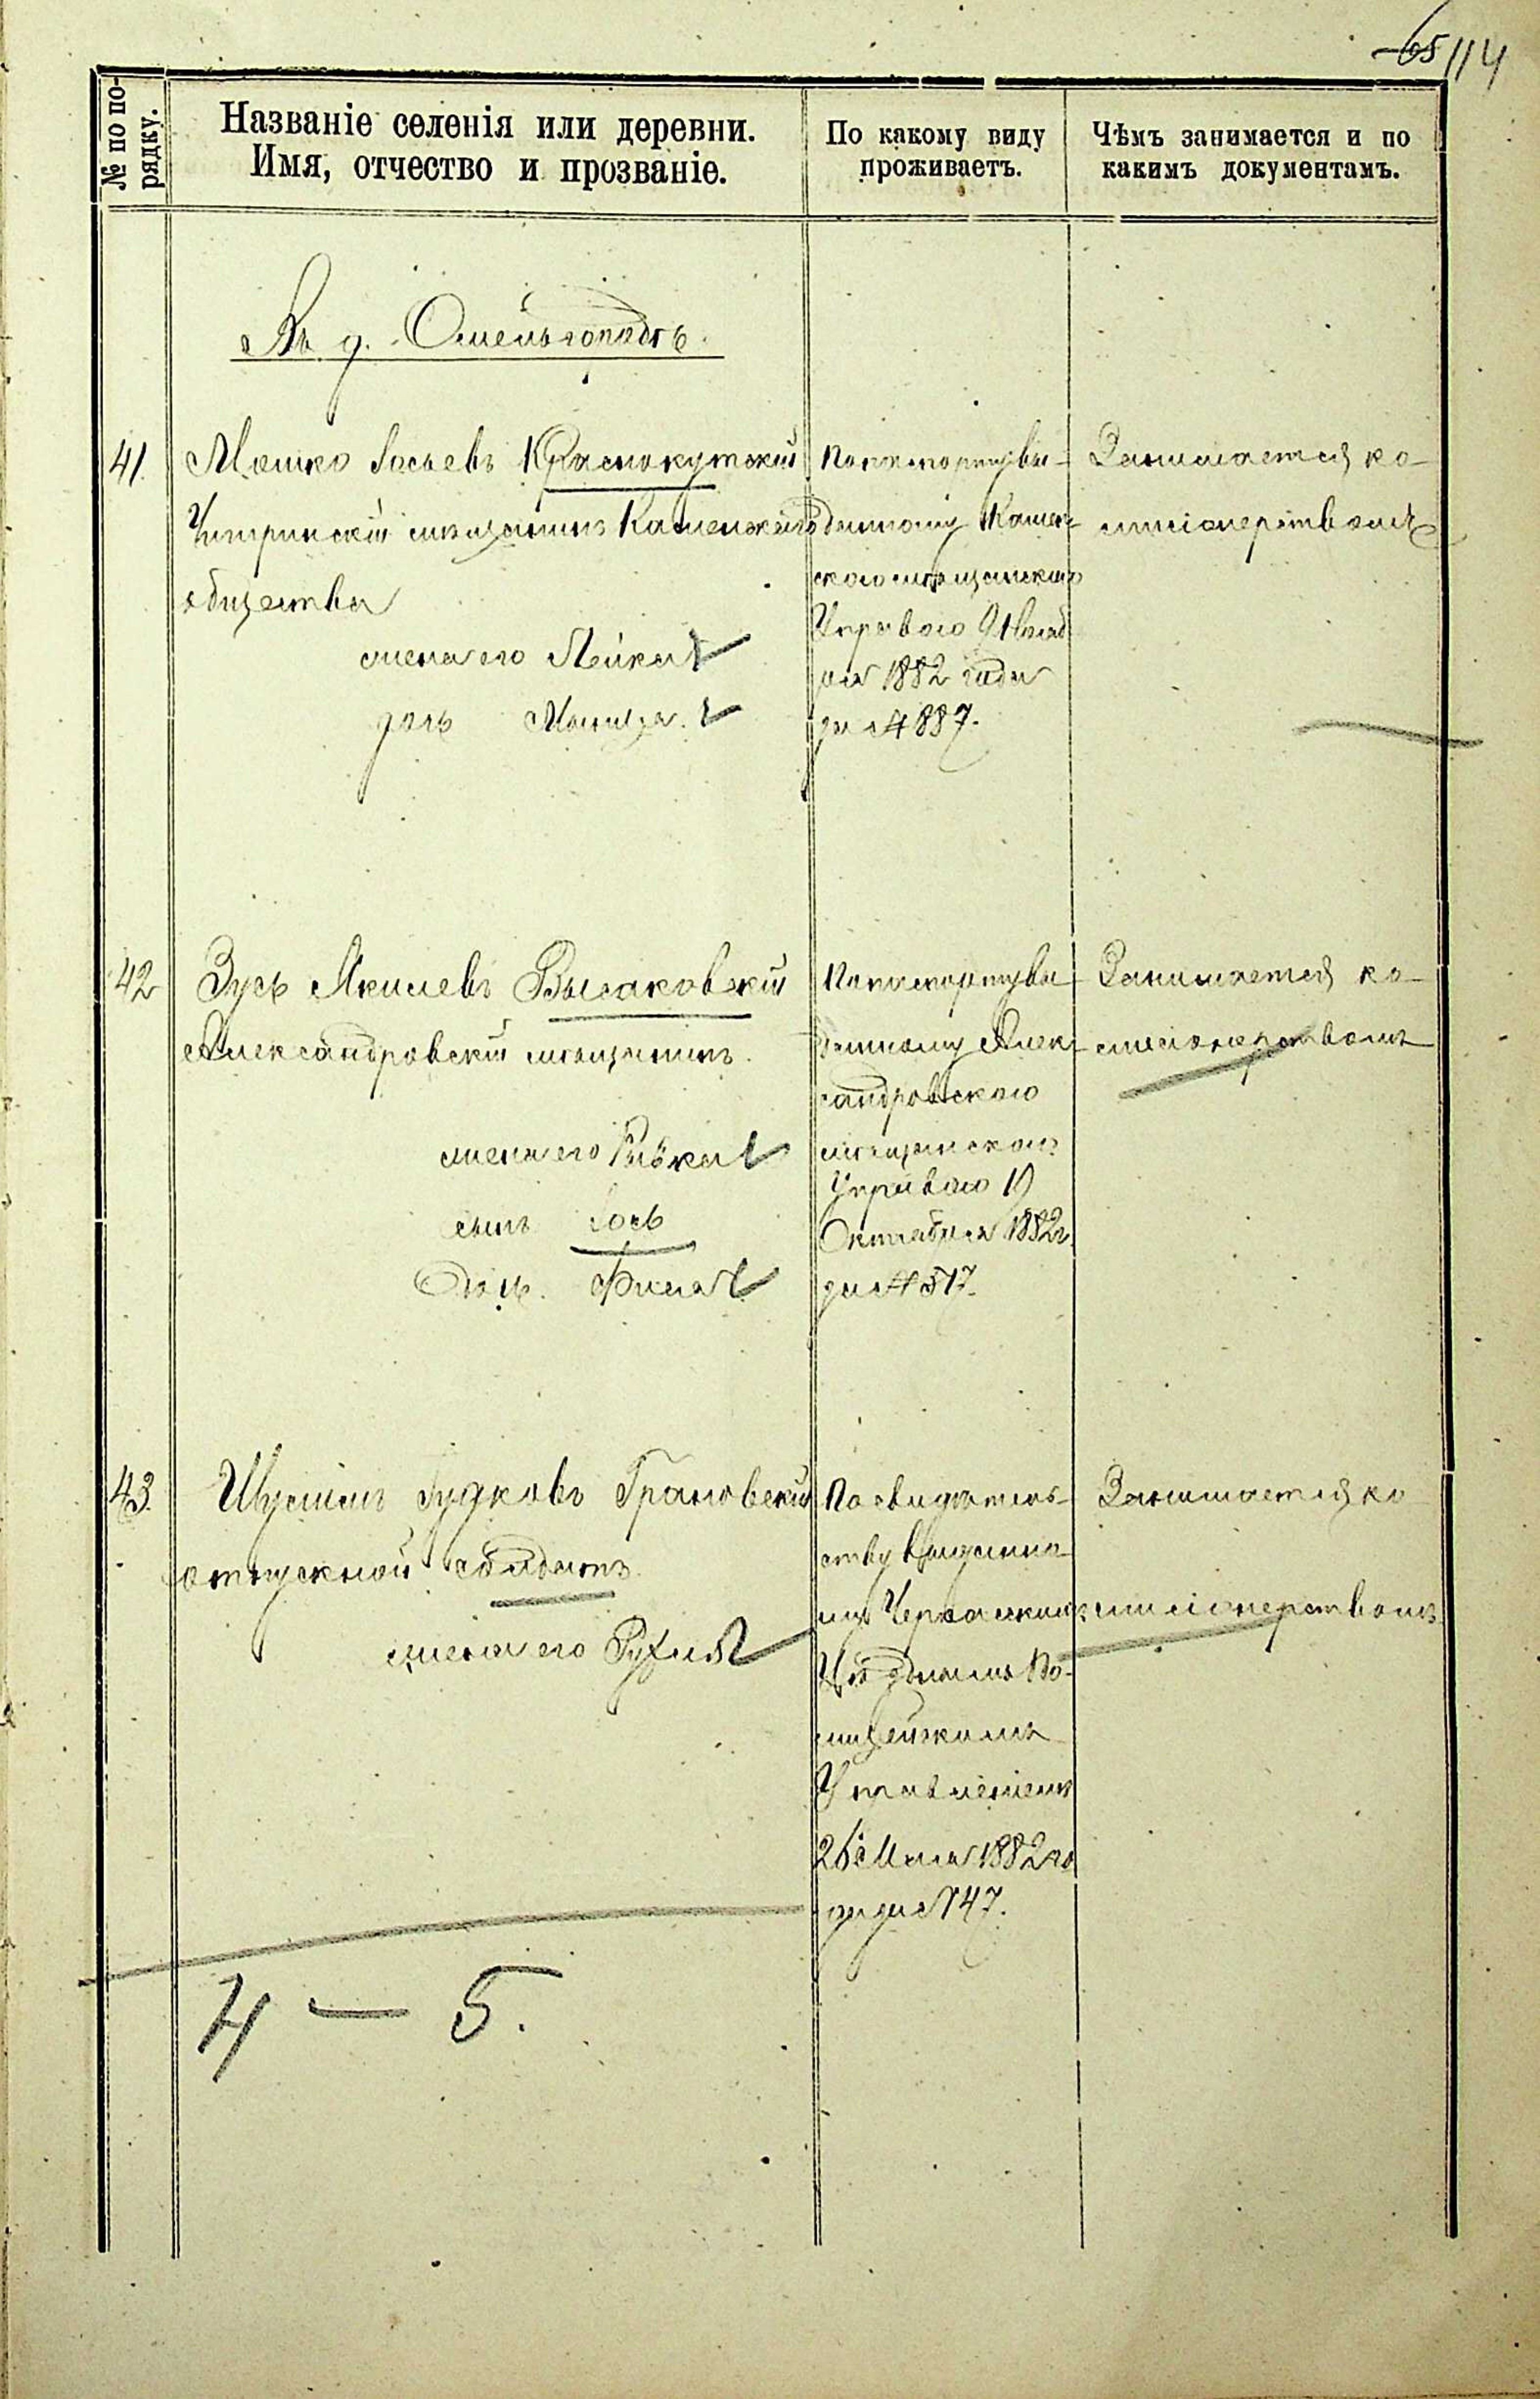 65 114
№ по по-
рядку.
Названіе селенія или деревни.
Имя, отчество и прозваніе.
По какому виду
проживаетъ.
Чѣмъ занимается и по
какимъ документамъ.
Въ д. Омельгородѣ.
41.
Мошко Іосьевъ Краснокутскій
мѣщанинъ Каменскаго
общества
жена его Лейка
дочь
По паспорту вы-
данному Камен-
скою мѣщанскою
Управою 9 Нояб
ря 1882 года
за № 887.
Занимается ко-
мисіонерствомъ
42
Зусь Акимовъ Высаковскій
Александровскій мѣщанинъ.
жена его Ривка
сынъ Іось
Дочь. Фима
По паспорту вы
данному Алек-
сандровскою
мѣщанскою
Управою 19
Октября 1882 г.
за № 517.
Занимается ко-
мисіонерствомъ
43.
Грановскій
отпускной солдатъ.
жена его Рухля
По свидѣтель-
ству выданно
му Черкаскимъ
Уѣзднымъ По-
лицейскимъ
Управленіемъ
26 Мая 1882 го
да за № 47.
Занимается ко
мисіонерствомъ
4 — 5.